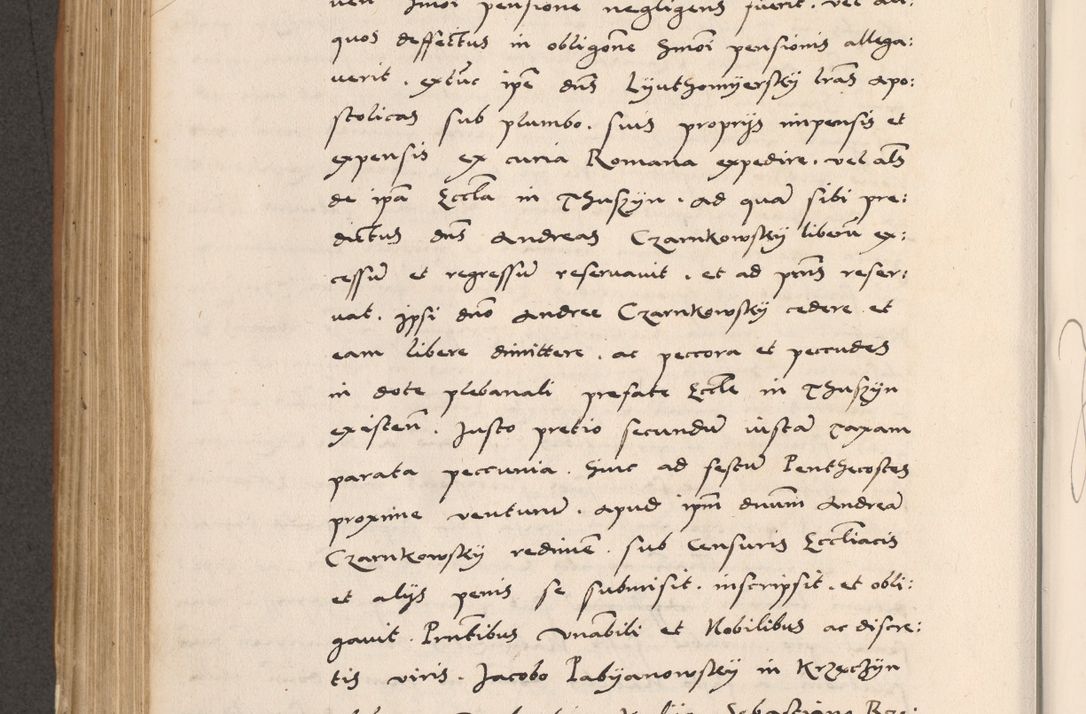 ven hmoi pensione negligens fuerit. vel ali:
quos deffectus in obligōne hmōi pensionis allega:
verit. extūc ipē dn̄s Lyuthomyersky lrās Apo:
stolicas sub plumbo. suis proprijs impensis et
expensis ex curia Romana expedire. vel al̄s
de ipā Eccl̄a in Thuszyn. ad quā sibi pre:
dictus dn̄s Andreas Czarnkowsky liberū ex:
cessū et regressū reservavit. et ad pn̄s reser:
vat. Ipsi dn̄o Andree Czarnkowsky cedere et
eam libere dimittere. ac peccora et peccudes
in dote plebanali prefate Eccl̄e in Thuszyn
existen̄. Justo pretio secundū iustā taxam
parata peccunia. hinc ad festū Penthecostes
proxime venturū. apud ipm̄ dnum̄ Andreā
Czarnkowsky redimē. sub Censuris Eccl̄iacis
et alijs penis se submisit. inscripsit. et obli:
gavit. Prn̄tibus vn̄abili et Nobilibus ac discre:
tis viris. Jacobo Pabyanowsky in Krzęczyn
Sebastiano